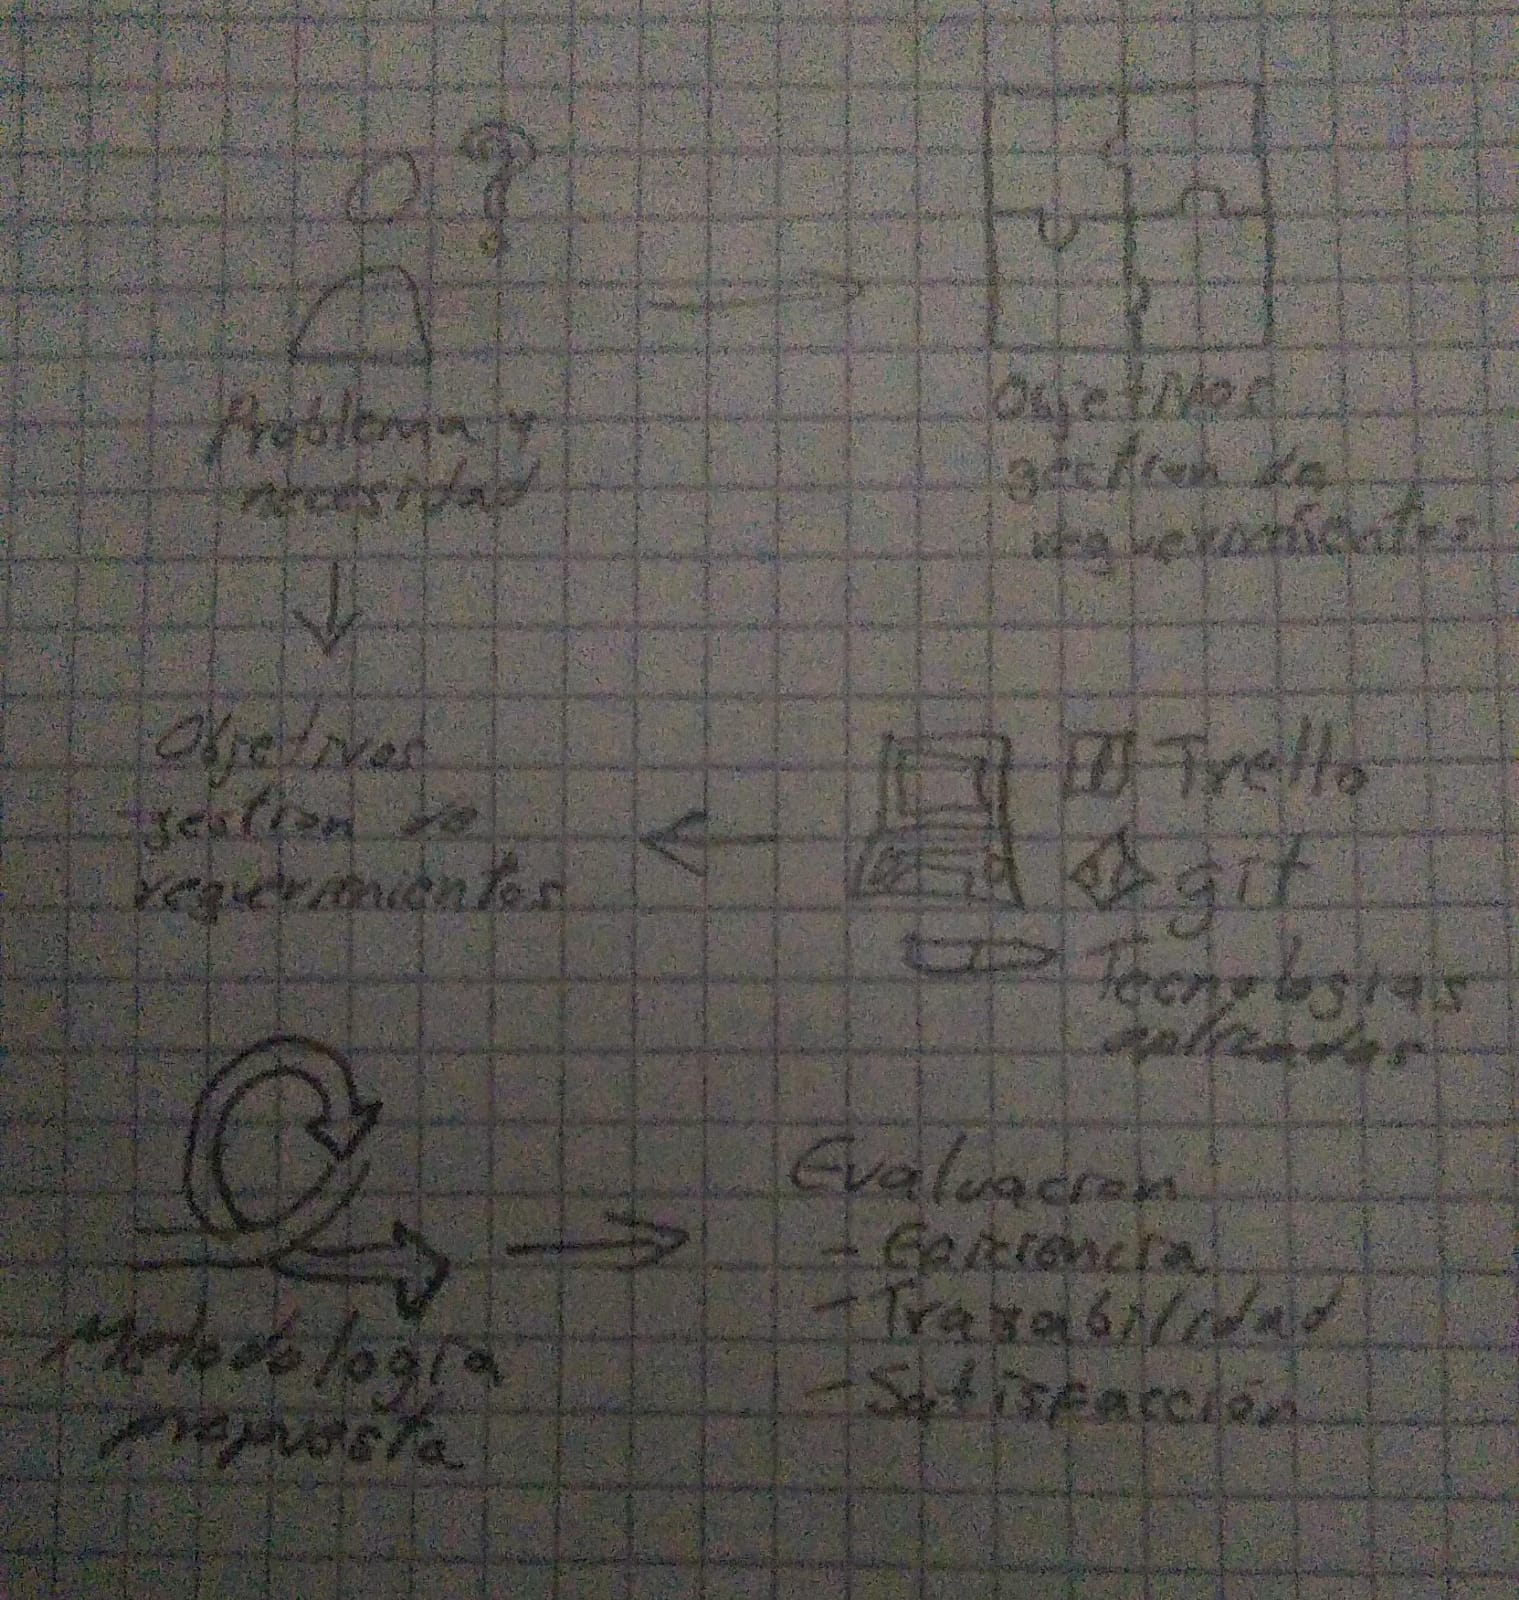 Problema y
necesidad
Objetivos
gestion de
requerimientos
Objetivos
gestion de
requerimientos
Trello
git
Tecnologias
aplicadas
Metodologia
propuesta
Evaluacion
- Eficiencia
- Trazabilidad
- Satisfacción